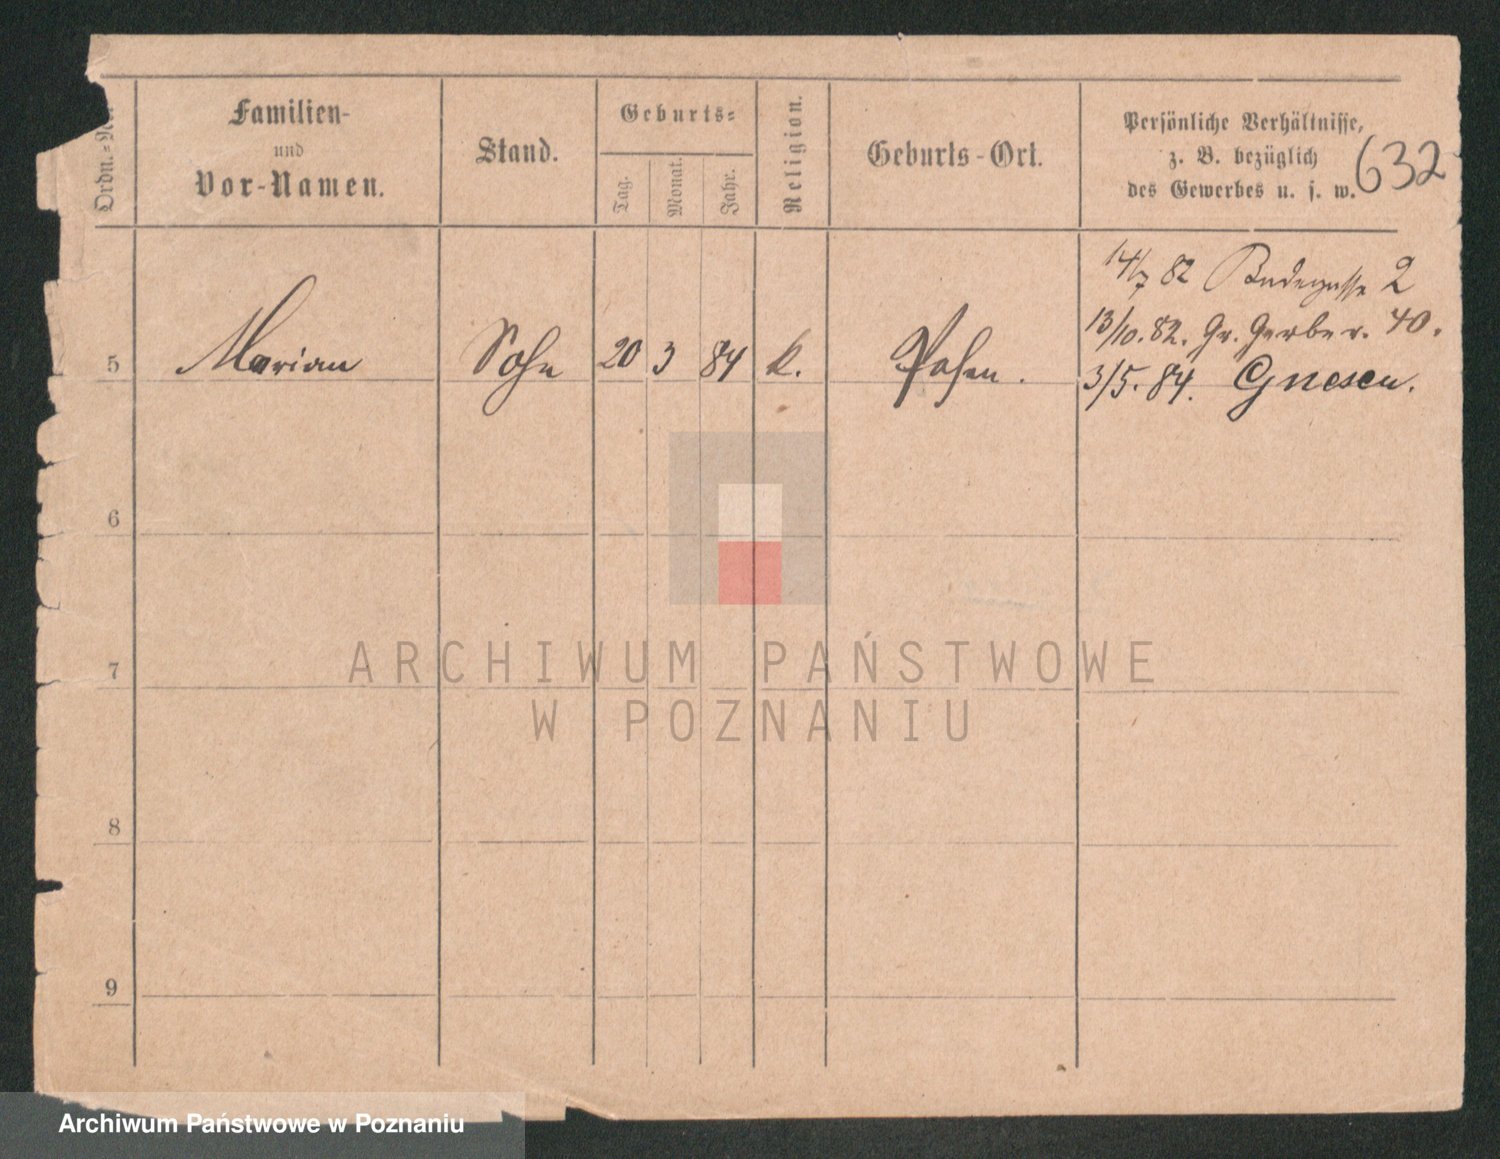 Ordn.=Nr.
Familien-
und
Vor-Namen.
Stand.
Geburts=
Tag.
Monat.
Jahr.
Religion.
Geburts-Ort.
Persönliche Verhältnisse,
z. B. bezüglich
des Gewerbes u. s. w.
632
14/7 82 2
13/10. 82. Gr. Gerber. 40.
5 Marian Sohn 20 3 84 k. Posen.
3/5. 84. Gnesen.
6
7
8
9
ARCHIWUM PAŃSTWOWE
W POZNANIU
Archiwum Państwowe w Poznaniu